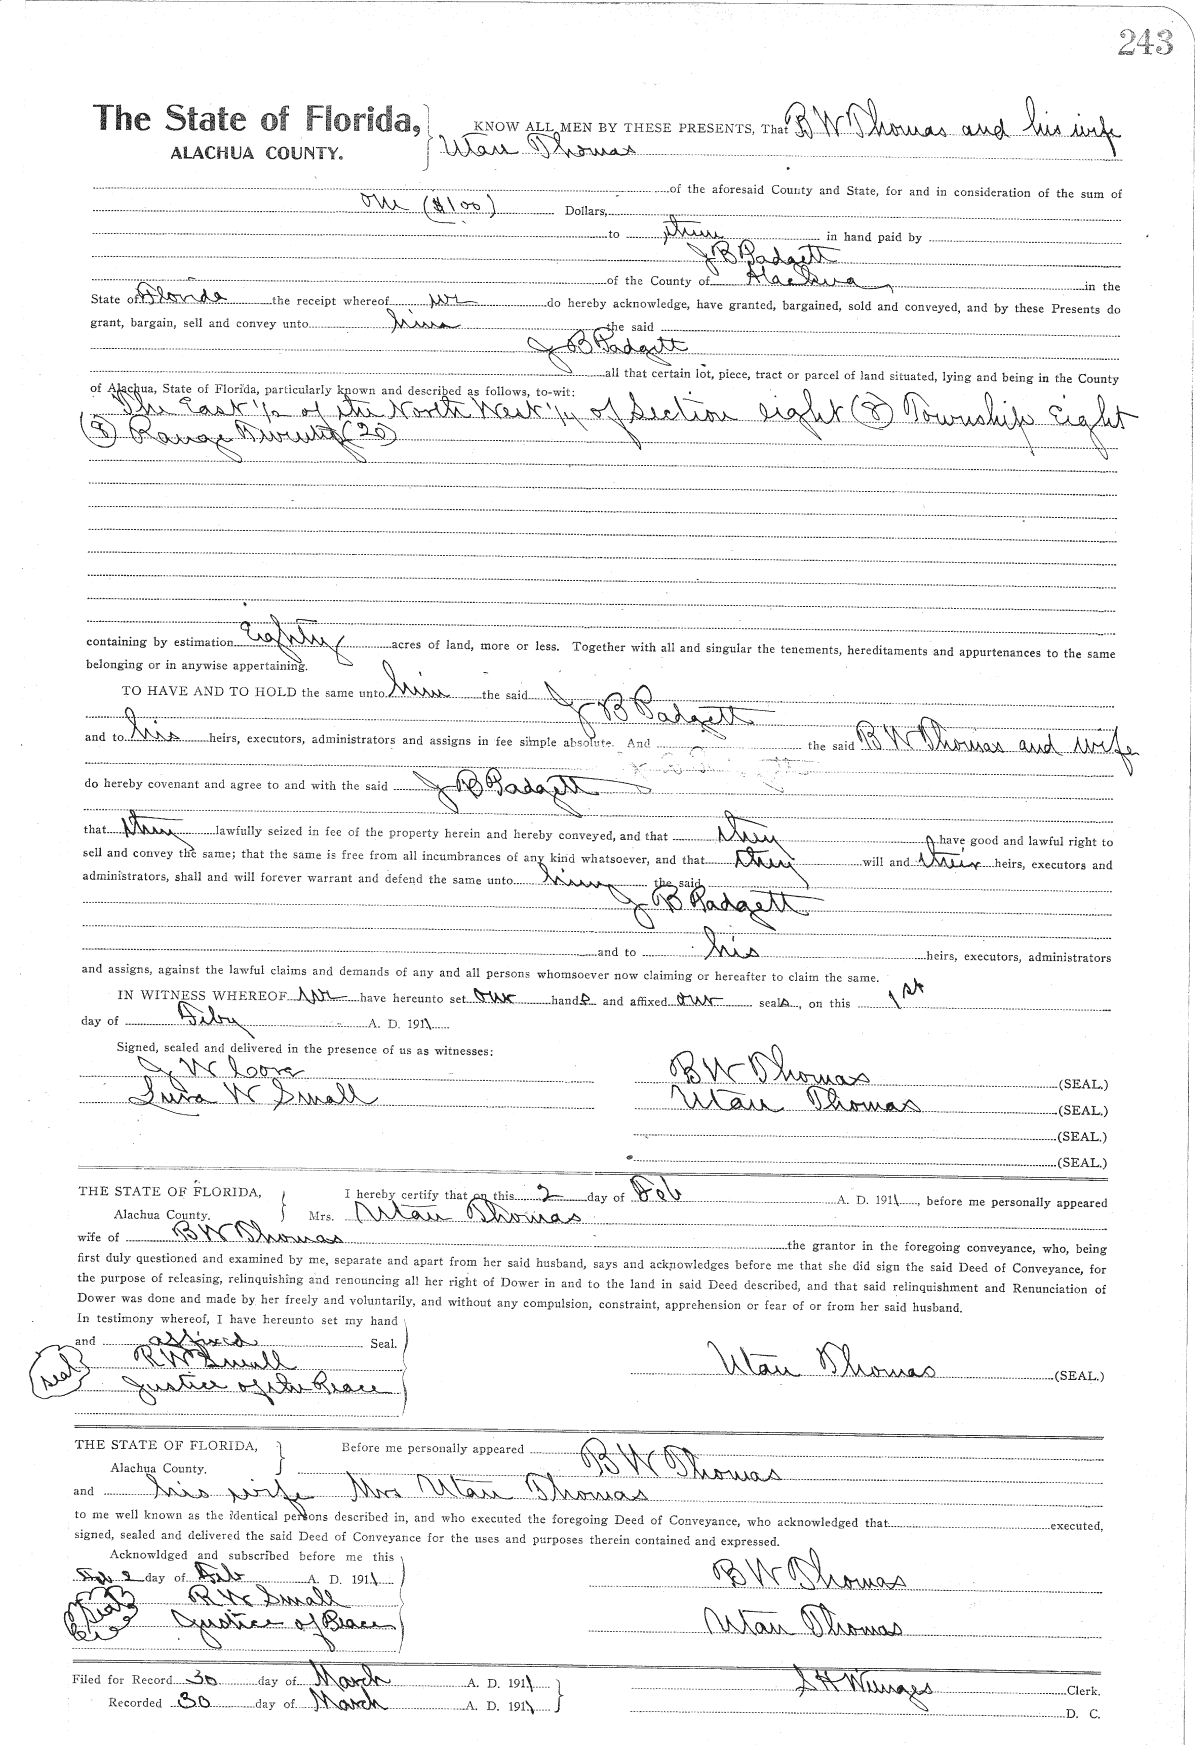 243
The State of Florida, KNOW ALL MEN BY THESE PRESENTS, That B W Thomas and his wife
ALACHUA COUNTY. Utau Thomas
of the aforesaid County and State, for and in consideration of the sum of
one ($1 00) Dollars,
to them in hand paid by
J B Padgett
of the County of Alachua, in the
State of Florida the receipt whereof we do hereby acknowledge, have granted, bargained, sold and conveyed, and by these Presents do
grant, bargain, sell and convey unto him the said
J B Padgett
all that certain lot, piece, tract or parcel of land situated, lying and being in the County
of Alachua, State of Florida, particularly known and described as follows, to-wit:
The East 1/2 of the North West 1/4 of Section eight (8) Township Eight
(8) Range Twenty (20)
containing by estimation Eighty acres of land, more or less. Together with all and singular the tenements, hereditaments and appurtenances to the same
belonging or in anywise appertaining.
TO HAVE AND TO HOLD the same unto him the said J B Padgett
and to his heirs, executors, administrators and assigns in fee simple absolute. And the said B W Thomas and wife
do hereby covenant and agree to and with the said J B Padgett
that they lawfully seized in fee of the property herein and hereby conveyed, and that they have good and lawful right to
sell and convey the same; that the same is free from all incumbrances of any kind whatsoever, and that they will and their heirs, executors and
administrators, shall and will forever warrant and defend the same unto him the said
J B Padgett
and to his heirs, executors, administrators
and assigns, against the lawful claims and demands of any and all persons whomsoever now claiming or hereafter to claim the same.
IN WITNESS WHEREOF we have hereunto set our hands and affixed our seals, on this 1st
day of Feby A. D. 1911
Signed, sealed and delivered in the presence of us as witnesses:
J W B W Thomas (SEAL.)
W Small Utau Thomas (SEAL.)
(SEAL.)
(SEAL.)
THE STATE OF FLORIDA, I hereby certify that on this 2 day of Feb A. D. 1911, before me personally appeared
Alachua County. Mrs. Utau Thomas
wife of B W Thomas the grantor in the foregoing conveyance, who, being
first duly questioned and examined by me, separate and apart from her said husband, says and acknowledges before me that she did sign the said Deed of Conveyance, for
the purpose of releasing, relinquishing and renouncing all her right of Dower in and to the land in said Deed described, and that said relinquishment and Renunciation of
Dower was done and made by her freely and voluntarily, and without any compulsion, constraint, apprehension or fear of or from her said husband.
In testimony whereof, I have hereunto set my hand
and affixed Seal.
R W Small
Seal Justice of the Peace Utau Thomas (SEAL.)
THE STATE OF FLORIDA, Before me personally appeared B W Thomas
Alachua County.
and his wife Mrs Utau Thomas
to me well known as the identical persons described in, and who executed the foregoing Deed of Conveyance, who acknowledged that executed,
signed, sealed and delivered the said Deed of Conveyance for the uses and purposes therein contained and expressed.
Acknowldged and subscribed before me this
2 day of Feb A. D. 1911 B W Thomas
R W Small
Seal Justice of Peace Utau Thomas
Filed for Record 30 day of March A. D. 1911 S H Wienges Clerk.
Recorded 30 day of March A. D. 1911 D. C.